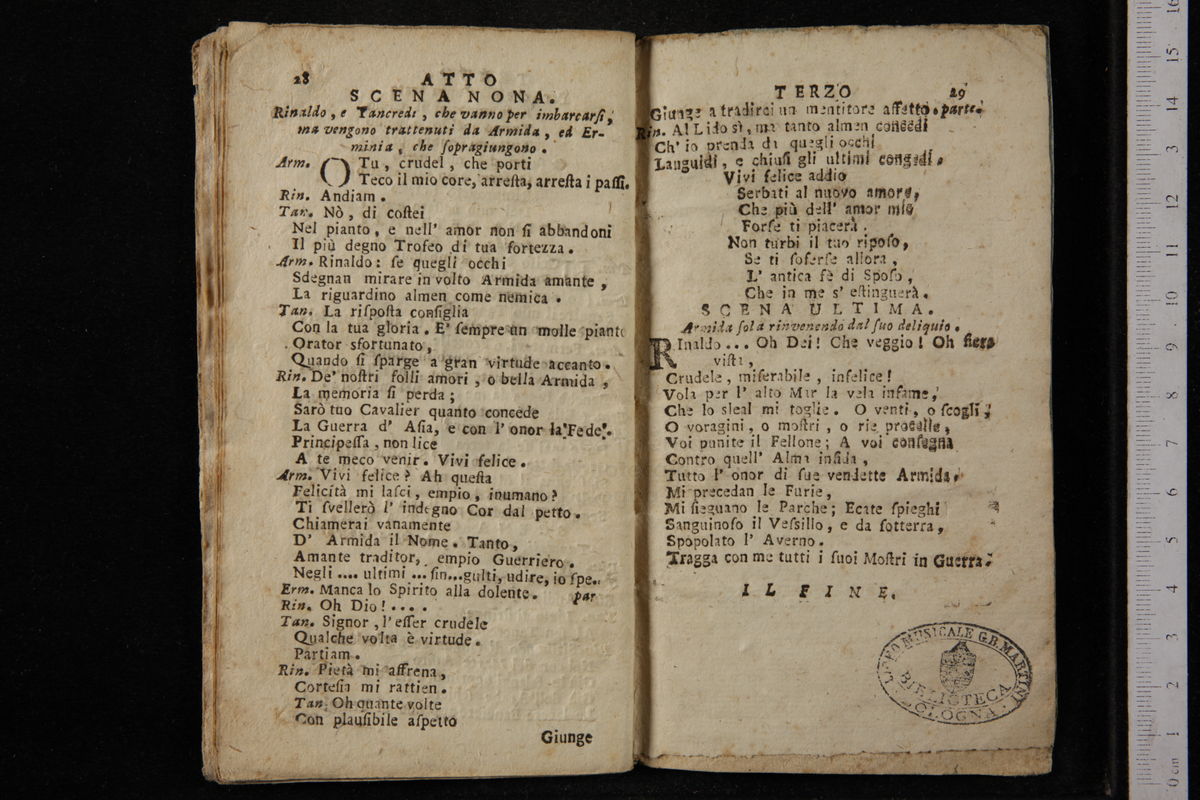 28
ATTO
SCENA NONA.
Rinaldo, e Tancredi, che vanno per imbarcarſi,
ma vengono trattenuti da Armida, ed Er-
minia, che ſopragiungono.
Arm. O Tu, crudel, che porti
Teco il mio core, arreſta, arreſta i paſſi.
Rin. Andiam.
Tan. Nò, di coſtei
Nel pianto, e nell' amor non ſi abbandoni
Il più degno Trofeo di tua fortezza.
Arm. Rinaldo: ſe quegli occhi
Sdegnan mirare in volto Armida amante,
La riguardino almen come nemica.
Tan. La riſpoſta conſiglia
Con la tua gloria. E' ſempre un molle piant
Orator sfortunato,
Quando ſi ſparge a gran virtude accanto.
Rin. De' noſtri folli amori, o bella Armida,
La memoria ſi perda;
Sarò tuo Cavalier quanto concede
La Guerra d' Aſia, e con l' onor la Fede.
Principeſſa, non lice
A te meco venir. Vivi felice.
Arm. Vivi felice? Ah queſta
Felicità mi laſci, empio, inumano?
Ti ſvellerò l' indegno Cor dal petto.
Chiamerai vanamente
D' Armida il Nome. Tanto,
Amante traditor, empio Guerriero.
Negli .... ultimi ... ſin...gulti, udire, io ſpe..
Erm. Manca lo Spirito alla dolente. par
Rin. Oh Dio! ....
Tan. Signor, l' eſſer crudele
Qualche volta è virtude.
Partiam.
Rin. Pietà mi affrena,
Corteſia mi rattien.
Tan. Oh quante volte
Con plauſibile aſpetto
Giunge
TERZO
29
Giunge a tradirci un mentitore affetto. parte.
Rin. Al Lido sì, ma tanto almen concedi
Ch' io prenda di quegli occhi
Languidi, e chiuſi gli ultimi congedi.
Vivi felice addio
Serbati al nuovo amore,
Che più dell' amor mio
Forſe ti piacerà.
Non turbi il tuo ripoſo,
Se ti ſoferſe allora,
L' antica fè di Spoſo,
Che in me s' eſtinguerà.
SCENA ULTIMA.
Armida ſola rinvenendo dal ſuo deliquio.
RInaldo... Oh Dei! Che veggio! Oh fiera
viſta,
Crudele, miſerabile, infelice!
Vola per l' alto Mar la vela infame,
Che lo sleal mi toglie. O venti, o ſcogli,
O voragini, o moſtri, o rie procelle,
Voi punite il Fellone; A voi conſegna
Contro quell' Alma infida,
Tutto l' onor di ſue vendette Armida.
Mi precedan le Furie,
Mi ſieguano le Parche; Ecate ſpieghi
Sanguinoſo il Veſsillo, e da ſotterra,
Spopolato l' Averno.
Tragga con me tutti i ſuoi Moſtri in Guerra.
IL FINE.
LICEO MUSICALE G.B. MARTINI
BIBLIOTECA
BOLOGNA
0 cm 1 2 3 4 5 6 7 8 9 10 11 12 13 14 15 16